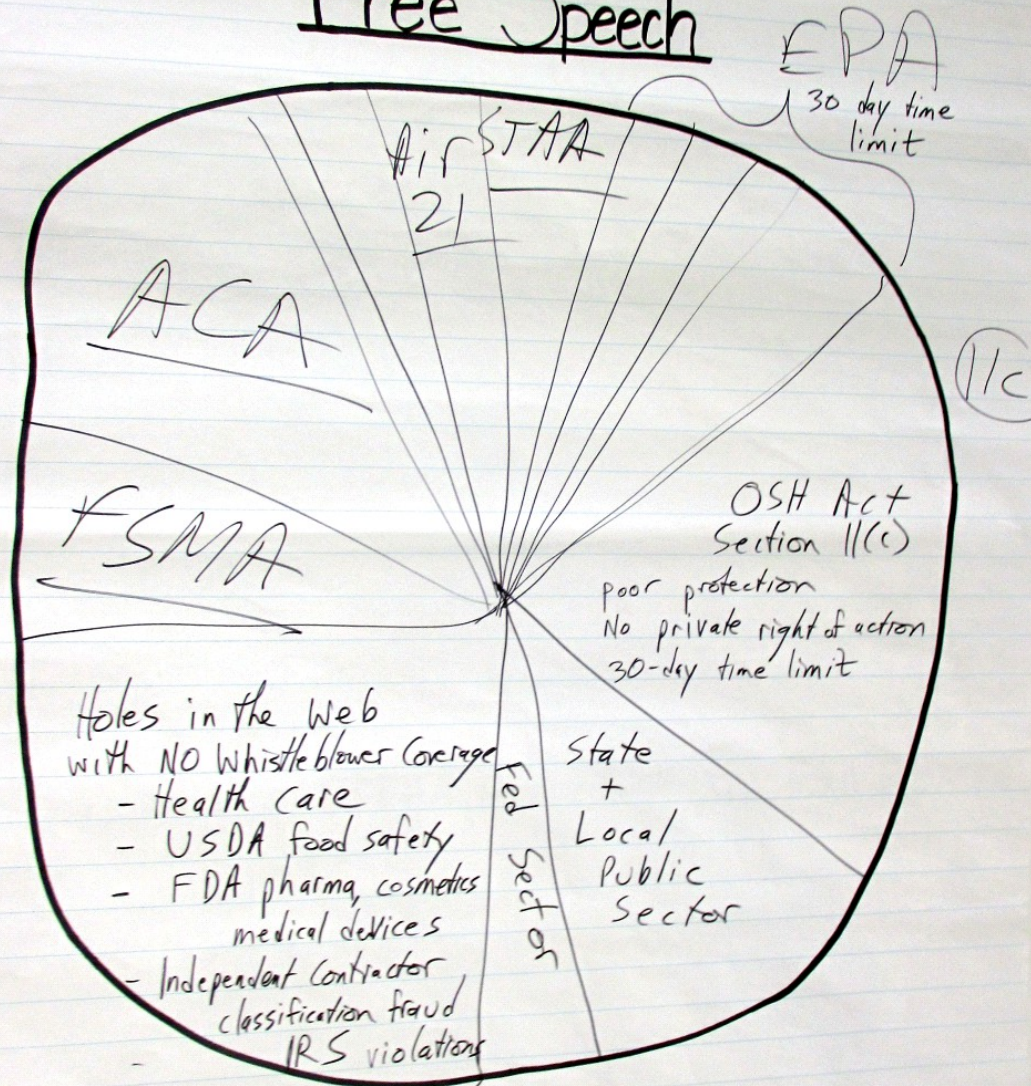 Free Speech
EPA
30 day time
limit
Air
21
STAA
ACA
11c
FSMA
OSH Act
Section 11(c)
poor protection
No private right of action
30-day time limit
Holes in the Web
with NO Whistleblower Coverage
- Health Care
- USDA food safety
- FDA pharma, cosmetics
medical devices
- Independent Contractor
classification fraud
IRS violations
-
Fed Sector
State
+
Local
Public
Sector